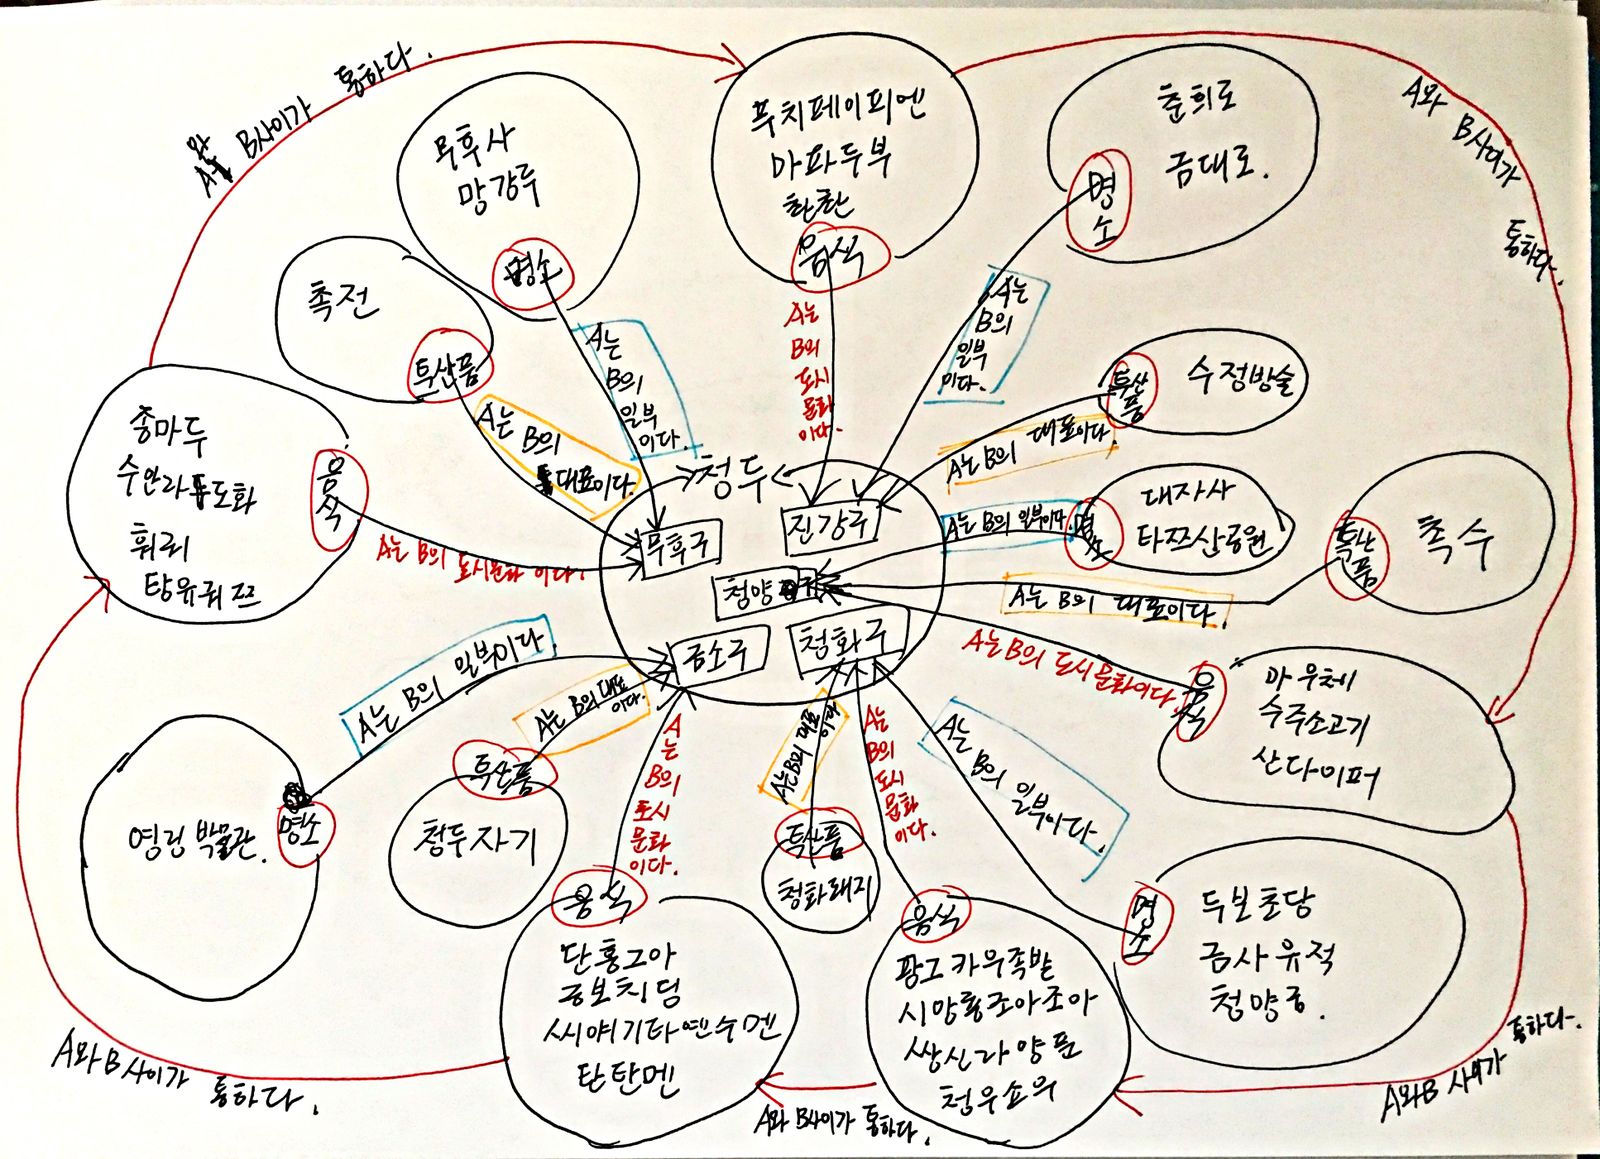 A와 B사이가 통하다.
무후사
망강루
명소
푸치페이피엔
마파두부
촨촨
음식
춘희로
금대로.
명소
A와 B사이가 통하다.
촉전
특산품
A는 B의 일부이다.
A는 B의 도시문화이다.
A는 B의 일부이다.
수정방술
특산품
A는 B의 대표이다.
A는 B의 대표이다.
총마두
수안라
훠궈
탕유궈즈
음식
A는 B의 도시문화이다.
청두
무후구
진강구
청양
금소구
청화구
A는 B의 일부이다.
대자사
타쯔산공원
명소
촉수
특산품
A는 B의 대표이다.
A는 B의 도시문화이다.
마우체
수주소고기
산다이퍼
음식
A는 B의 일부이다.
박물관.
명소
A는 B의 대표이다.
특산품
청두자기
A는 B의 도시문화이다.
음식
단홍고아
궁보치딩
단탄멘
A는 B의 대표이다.
특산품
청화돼지
A는 B의 도시문화이다.
음식
A는 B의 일부이다.
명소
두보초당
금사유적
청양궁.
A와 B사이가 통하다.
A와 B사이가 통하다.
A와 B사이가 통하다.